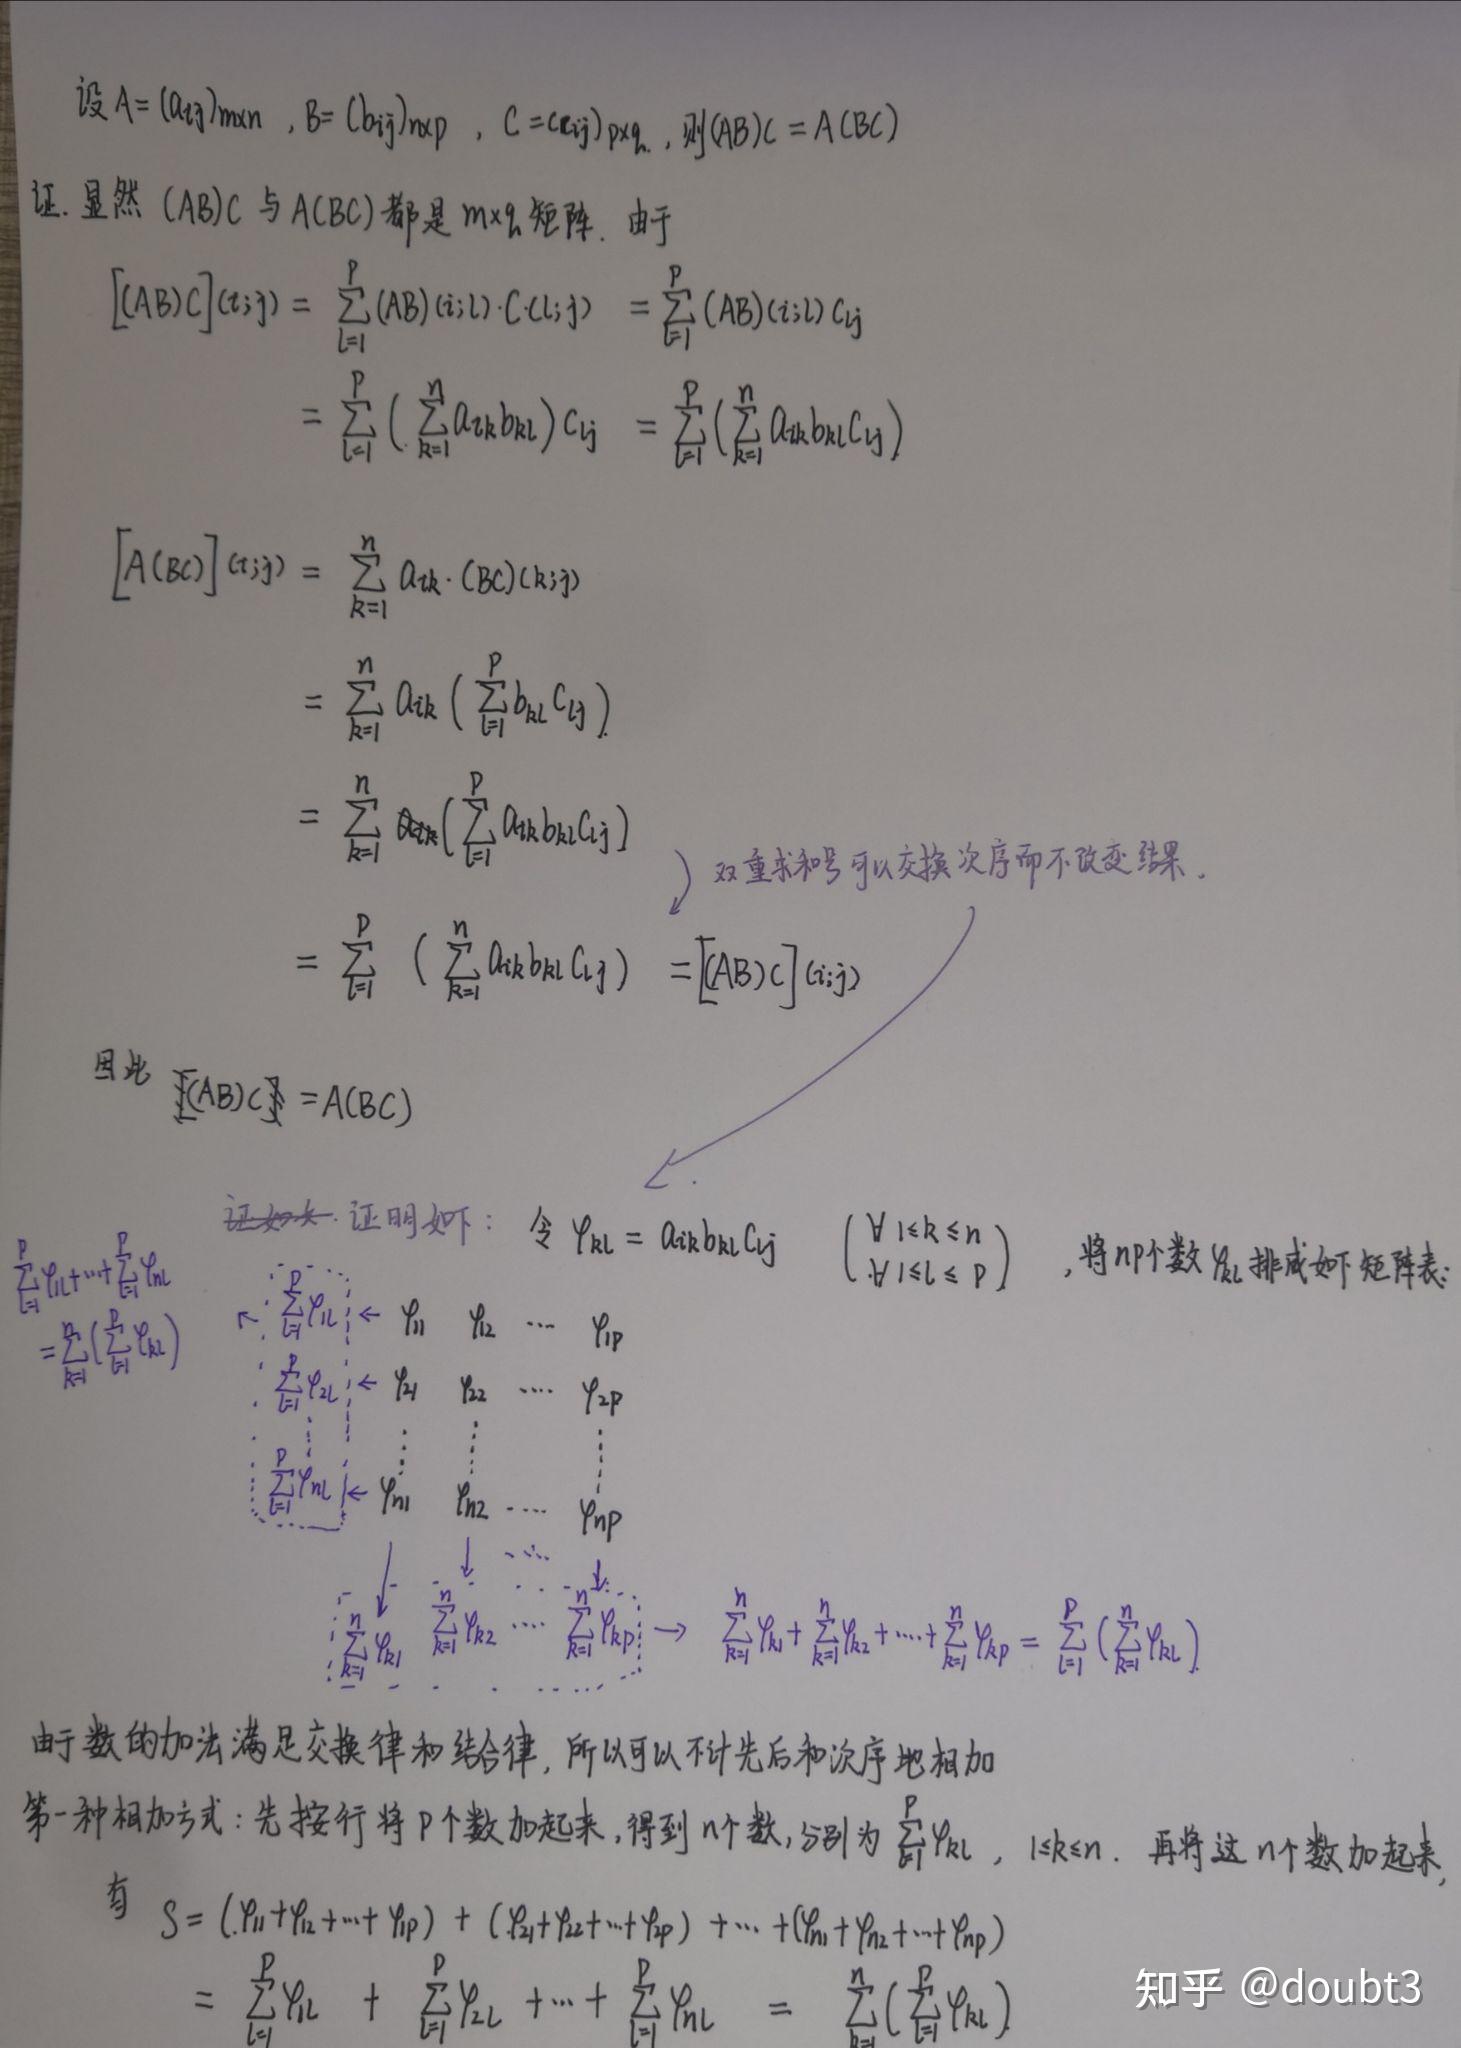 设 A = (aij)m×n , B = (bij)n×p , C = (cij)p×q , 则(AB)C = A(BC)
证. 显然 (AB)C 与 A(BC) 都是 m×q 矩阵. 由于
[(AB)C](i;j) = ∑_{l=1}^{p} (AB)(i;l)·C(l;j) = ∑_{l=1}^{p} (AB)(i;l) c_{lj}
= ∑_{l=1}^{p} ( ∑_{k=1}^{n} a_{ik}b_{kl} ) c_{lj} = ∑_{l=1}^{p} ( ∑_{k=1}^{n} a_{ik}b_{kl}c_{lj} )
[A(BC)](i;j) = ∑_{k=1}^{n} a_{ik}·(BC)(k;j)
= ∑_{k=1}^{n} a_{ik} ( ∑_{l=1}^{p} b_{kl}c_{lj} )
= ∑_{k=1}^{n} ( ∑_{l=1}^{p} a_{ik}b_{kl}c_{lj} )
双重求和号可以交换次序而不改变结果.
= ∑_{l=1}^{p} ( ∑_{k=1}^{n} a_{ik}b_{kl}c_{lj} ) = [(AB)C](i;j)
因此 (AB)C = A(BC)
证明如下: 令 φ_{kl} = a_{ik}b_{kl}c_{lj} (∀ 1≤k≤n ∀ 1≤l≤p) , 将np个数 φ_{kl} 排成如下矩阵表:
∑_{l=1}^{p} φ_{1l} + ⋯ + ∑_{l=1}^{p} φ_{nl}
= ∑_{k=1}^{n} ( ∑_{l=1}^{p} φ_{kl} )
∑_{l=1}^{p} φ_{1l} ← φ_{11} φ_{12} ⋯ φ_{1p}
∑_{l=1}^{p} φ_{2l} ← φ_{21} φ_{22} ⋯ φ_{2p}
∑_{l=1}^{p} φ_{nl} ← φ_{n1} φ_{n2} ⋯ φ_{np}
∑_{k=1}^{n} φ_{k1} ∑_{k=1}^{n} φ_{k2} ⋯ ∑_{k=1}^{n} φ_{kp} → ∑_{k=1}^{n} φ_{k1} + ∑_{k=1}^{n} φ_{k2} + ⋯ + ∑_{k=1}^{n} φ_{kp} = ∑_{l=1}^{p} ( ∑_{k=1}^{n} φ_{kl} )
由于数的加法满足交换律和结合律, 所以可以不计先后和次序地相加
第一种相加方式: 先按行将 p个数加起来, 得到 n个数, 分别为 ∑_{l=1}^{p} φ_{kl} , 1≤k≤n. 再将这 n个数加起来,
有 S = (φ_{11}+φ_{12}+⋯+φ_{1p}) + (φ_{21}+φ_{22}+⋯+φ_{2p}) + ⋯ + (φ_{n1}+φ_{n2}+⋯+φ_{np})
= ∑_{l=1}^{p} φ_{1l} + ∑_{l=1}^{p} φ_{2l} + ⋯ + ∑_{l=1}^{p} φ_{nl} = ∑_{k=1}^{n} ( ∑_{l=1}^{p} φ_{kl} )
知乎 @doubt3